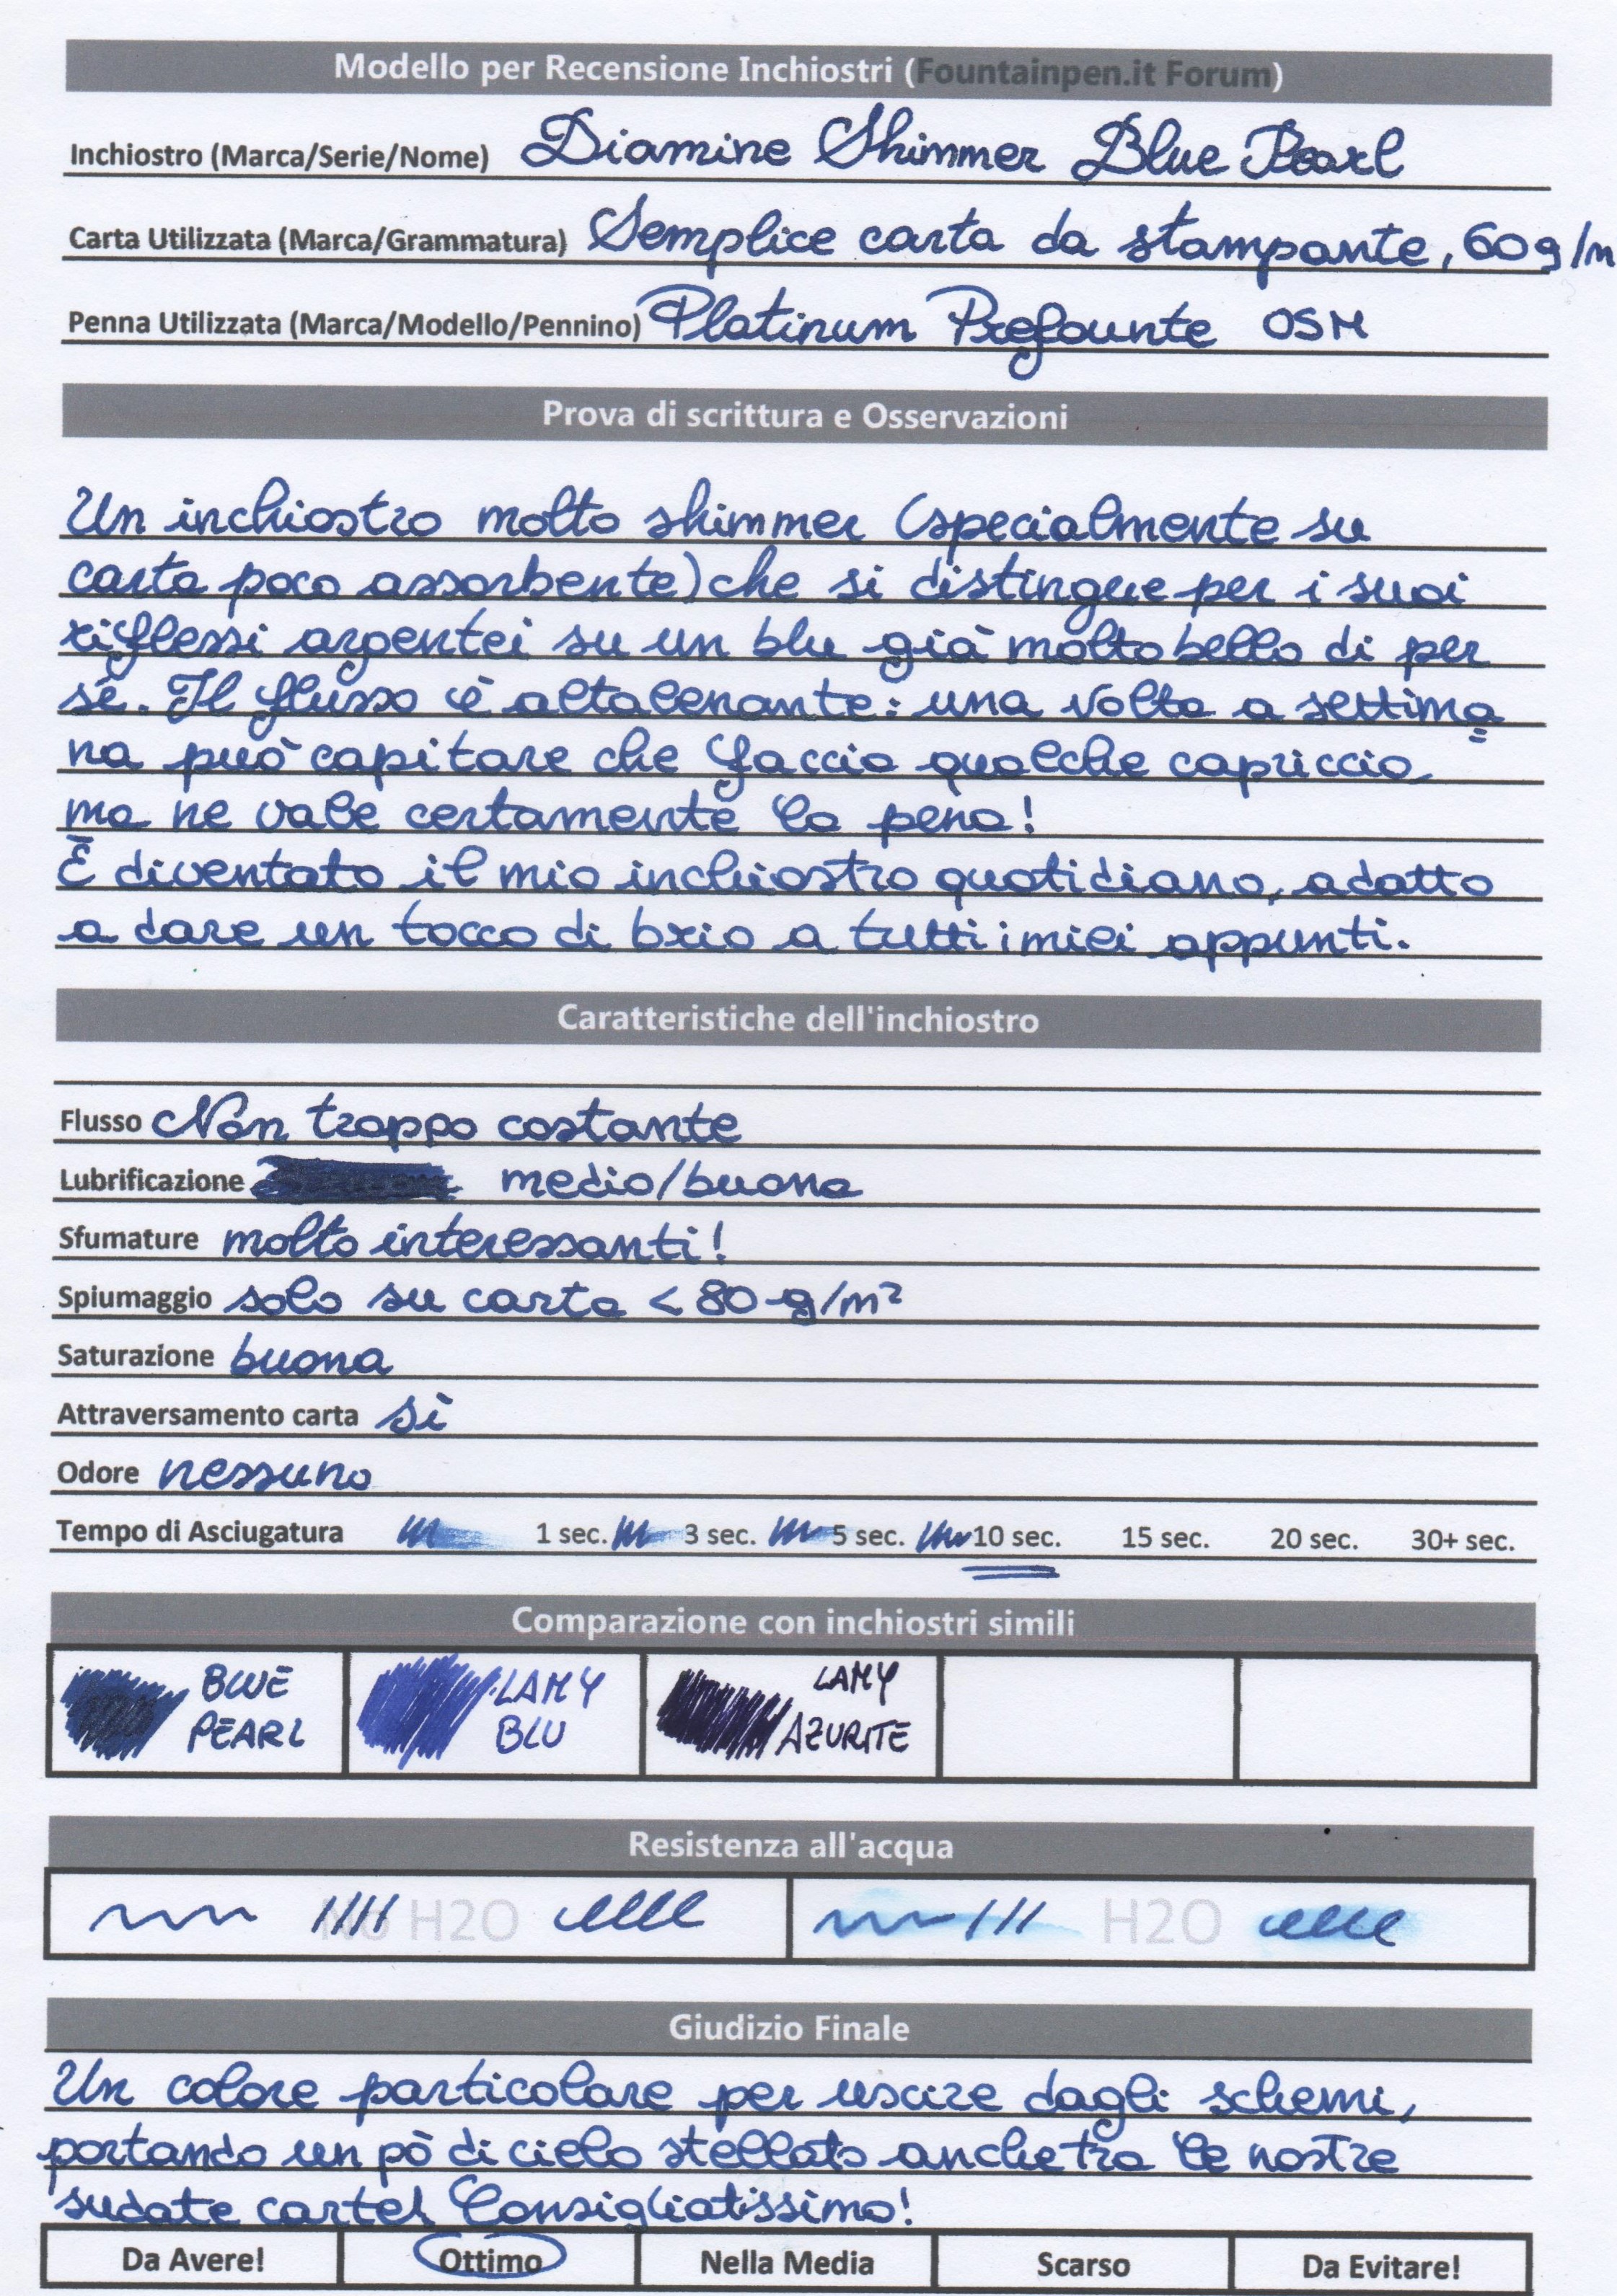 Modello per Recensione Inchiostri (Fountainpen.it Forum)
Inchiostro (Marca/Serie/Nome) Diamine Shimmer Blue Pearl
Carta Utilizzata (Marca/Grammatura) Semplice carta da stampante, 60g/m
Penna Utilizzata (Marca/Modello/Pennino) Platinum Prefounte OSM
Prova di scrittura e Osservazioni
Un inchiostro molto shimmer (specialmente su
carta poco assorbente) che si distingue per i suoi
riflessi argentei su un blu già molto bello di per
sé. Il flusso è altalenante: una volta a settima=
na può capitare che faccia qualche capriccio
ma ne vale certamente la pena!
È diventato il mio inchiostro quotidiano, adatto
a dare un tocco di brio a tutti i miei appunti.
Caratteristiche dell'inchiostro
Flusso Non troppo costante
Lubrificazione medio/buona
Sfumature molto interessanti!
Spiumaggio solo su carta < 80 g/m²
Saturazione buona
Attraversamento carta sì
Odore nessuno
Tempo di Asciugatura 1 sec. 3 sec. 5 sec. 10 sec. 15 sec. 20 sec. 30+ sec.
Comparazione con inchiostri simili
BLUE PEARL
LAMY BLU
LAMY AZURITE
Resistenza all'acqua
No H2O
H2O
Giudizio Finale
Un colore particolare per uscire dagli schemi,
portando un pò di cielo stellato anche tra le nostre
sudate carte! Consigliatissimo!
Da Avere! Ottimo Nella Media Scarso Da Evitare!